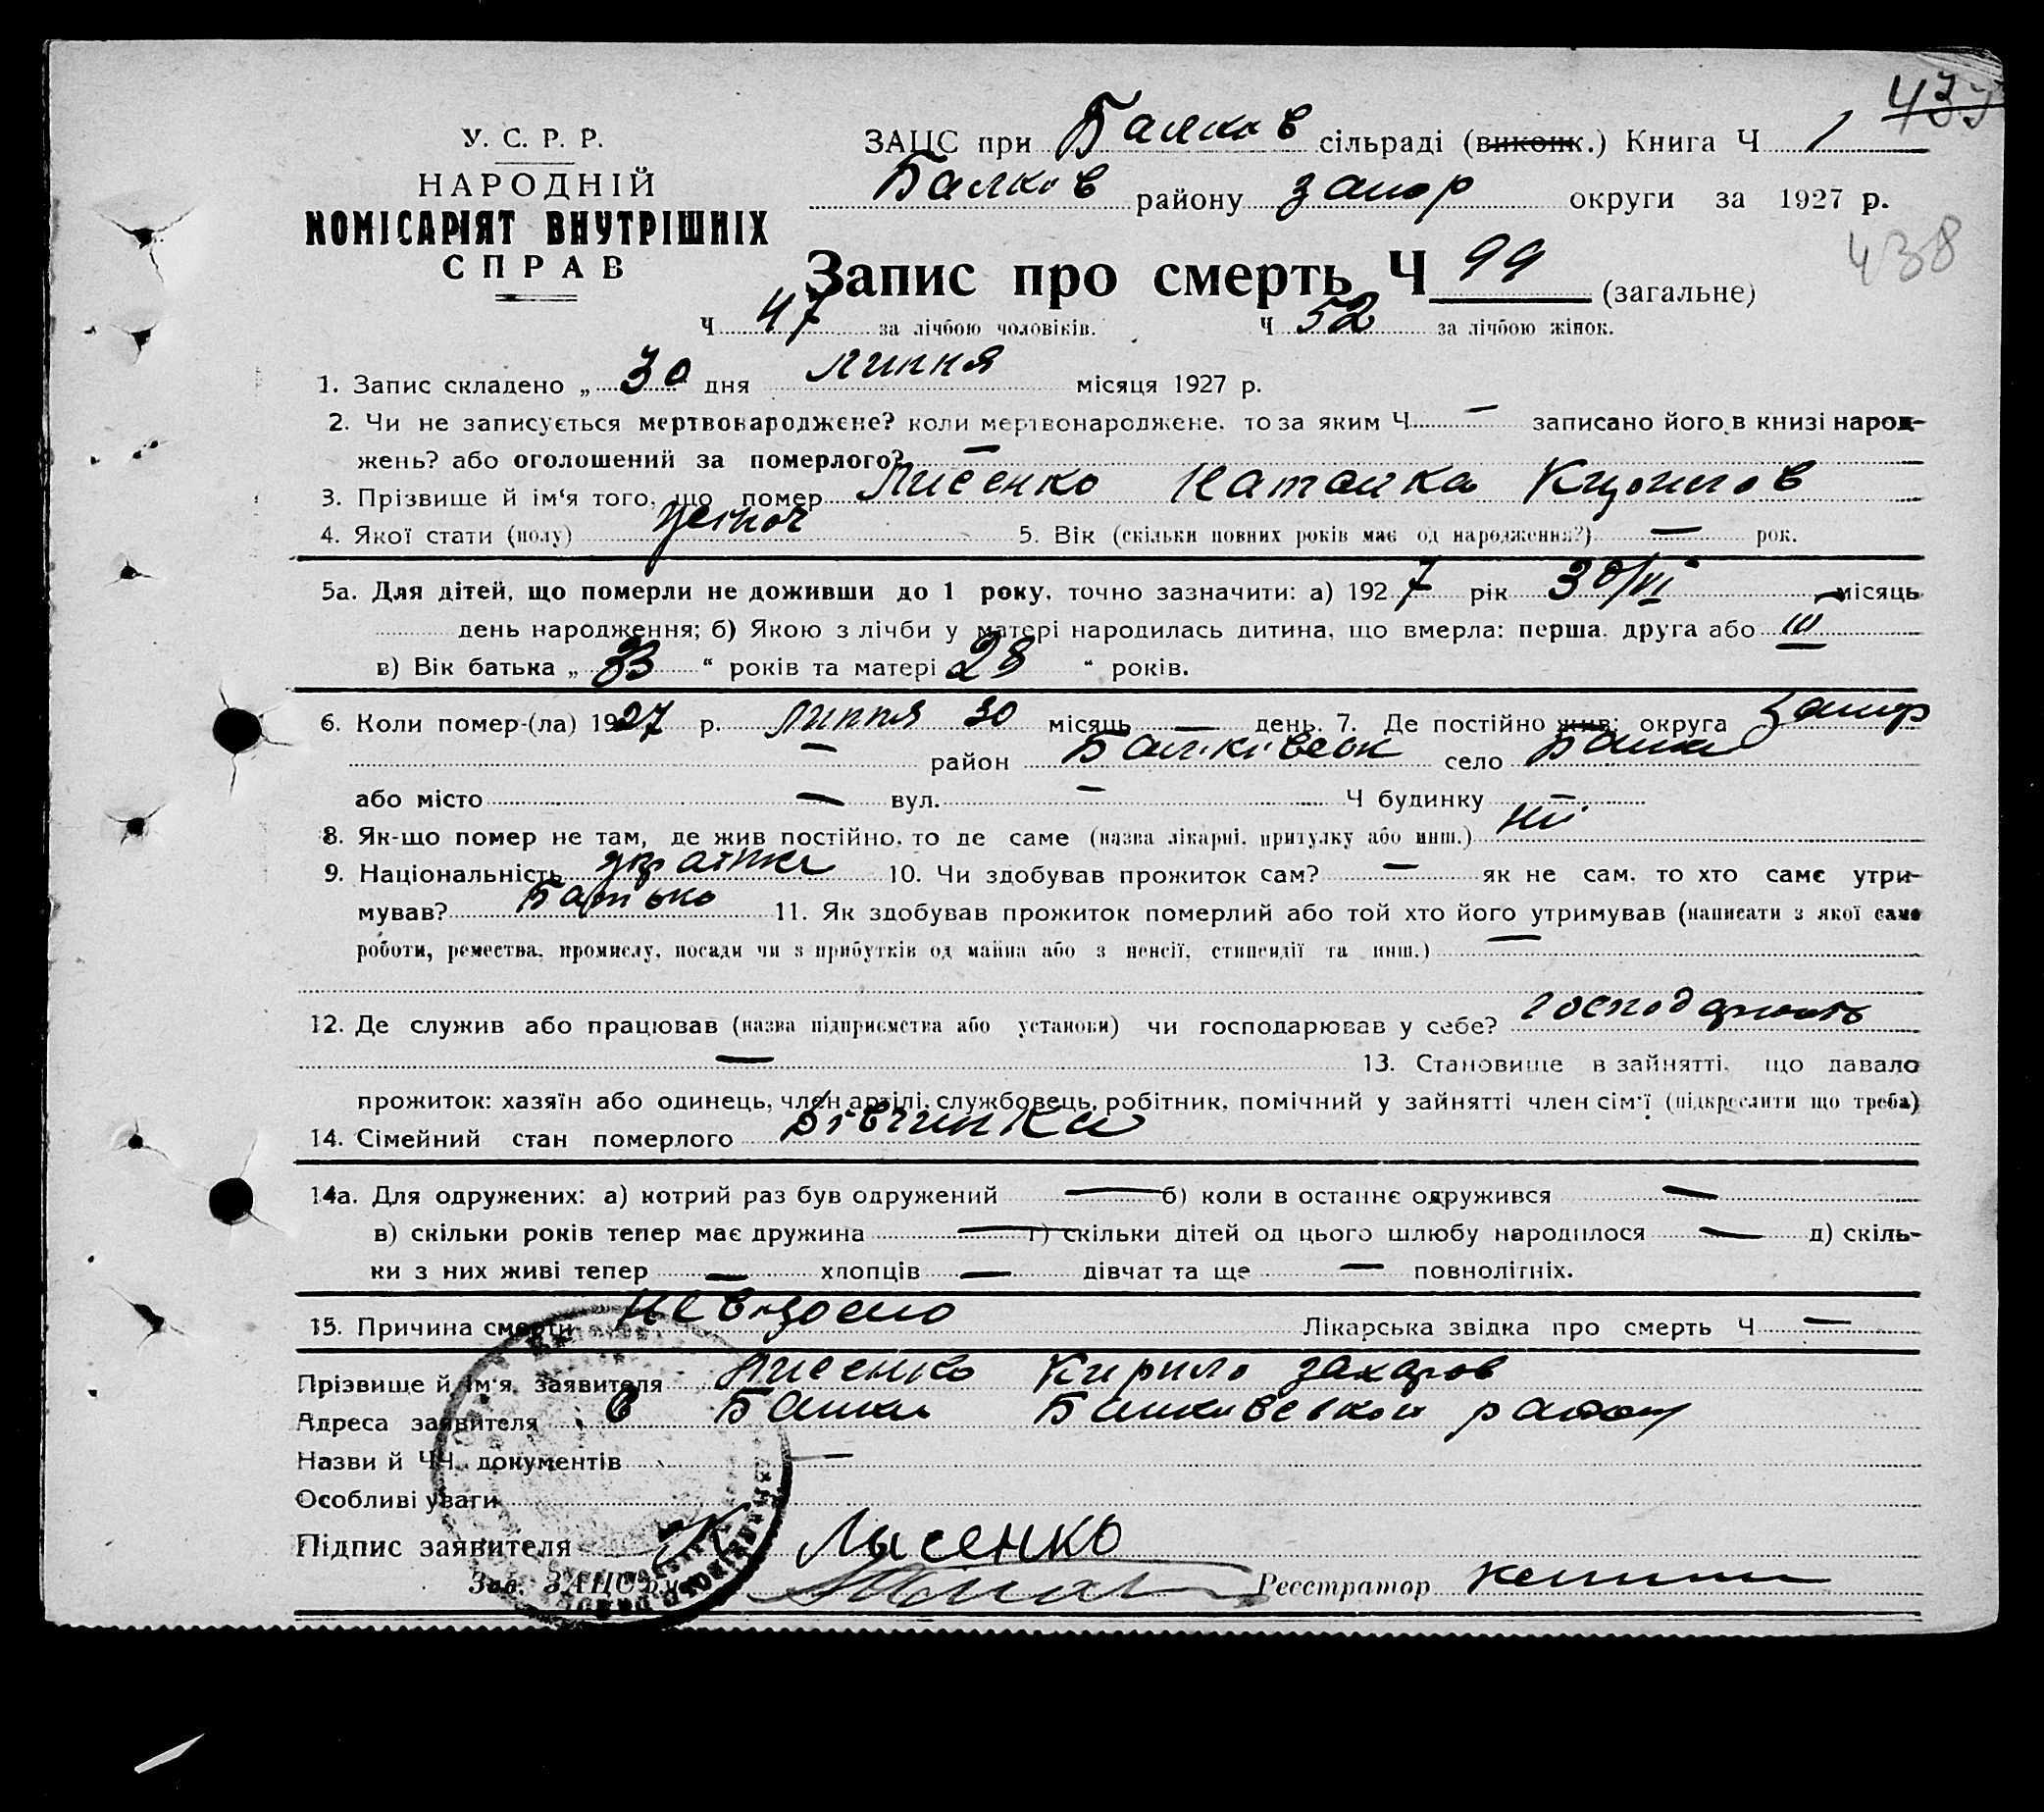 437
У. С. Р. Р.
НАРОДНІЙ
КОМІСАРІЯТ ВНУТРІШНІХ
СПРАВ
ЗАЦС при Балков сільраді (виконк.) Книга Ч 1
Балков району Запор округи за 1927 р.
438
Запис про смерть Ч 99 (загальне)
Ч 47 за лічбою чоловіків. Ч 52 за лічбою жінок.
1. Запис складено „ 30 дня липня місяця 1927 р.
2. Чи не записується мертвонароджене? коли мертвонароджене, то за яким Ч — записано його в книзі народ-
жень? або оголошений за померлого? —
3. Прізвище й ім'я того, що помер Лисенко Наталка
4. Якої стати (полу) жіноч 5. Вік (скільки повних років має од народження?) — рок.
5а. Для дітей, що померли не доживши до 1 року, точно зазначити: а) 1927 рік 30/VI місяць
день народження; б) Якою з лічби у матері народилась дитина, що вмерла: перша, друга або III
в) Вік батька „ 33 “ років та матері 28 “ років.
6. Коли помер-(ла) 1927 р. липня 30 місяць — день. 7. Де постійно жив: округа Запор
— район Балківськ село Балки
або місто — вул. — Ч будинку —
8. Як-що помер не там, де жив постійно, то де саме (назва лікарні, притулку або инш.) ні
9. Національність українка 10. Чи здобував прожиток сам? — як не сам, то хто саме утри-
мував? Батько 11. Як здобував прожиток померлий або той хто його утримував (написати з якої саме
роботи, ремества, промислу, посади чи з прибутків од майна або з пенсії, стипендії та инш.) —
12. Де служив або працював (назва підприємства або установи) чи господарював у себе?
— 13. Становище в зайнятті, що давало
прожиток: хазяїн або одинець, член артілі, службовець, робітник, помічний у зайнятті член сім'ї (підкреслити що треба)
14. Сімейний стан померлого дівчинка
14а. Для одружених: а) котрий раз був одружений — б) коли в останнє одружився —
в) скільки років тепер має дружина — г) скільки дітей од цього шлюбу народилося — д) скіль-
ки з них живі тепер — хлопців — дівчат та ще — повнолітніх.
15. Причина смерти невідомо Лікарська звідка про смерть Ч —
Прізвище й ім'я заявителя Лисенко Кирило Захаров
Адреса заявителя с Балки Балкивської району
Назви й ЧЧ документів —
Особливі уваги
Підпис заявителя К Лысенко
Зав. ЗАЦСом Реєстратор